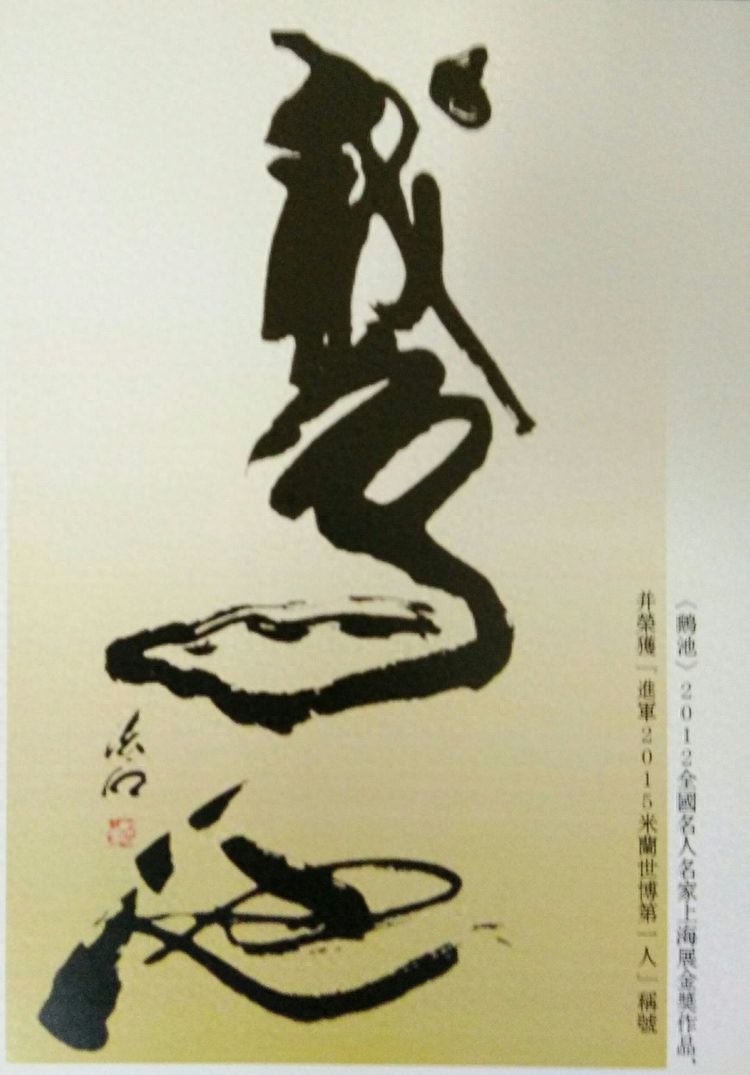 鵝池
《鵝池》2012全國名人名家上海展金獎作品、
并榮獲「進軍2015米蘭世博第一人」稱號